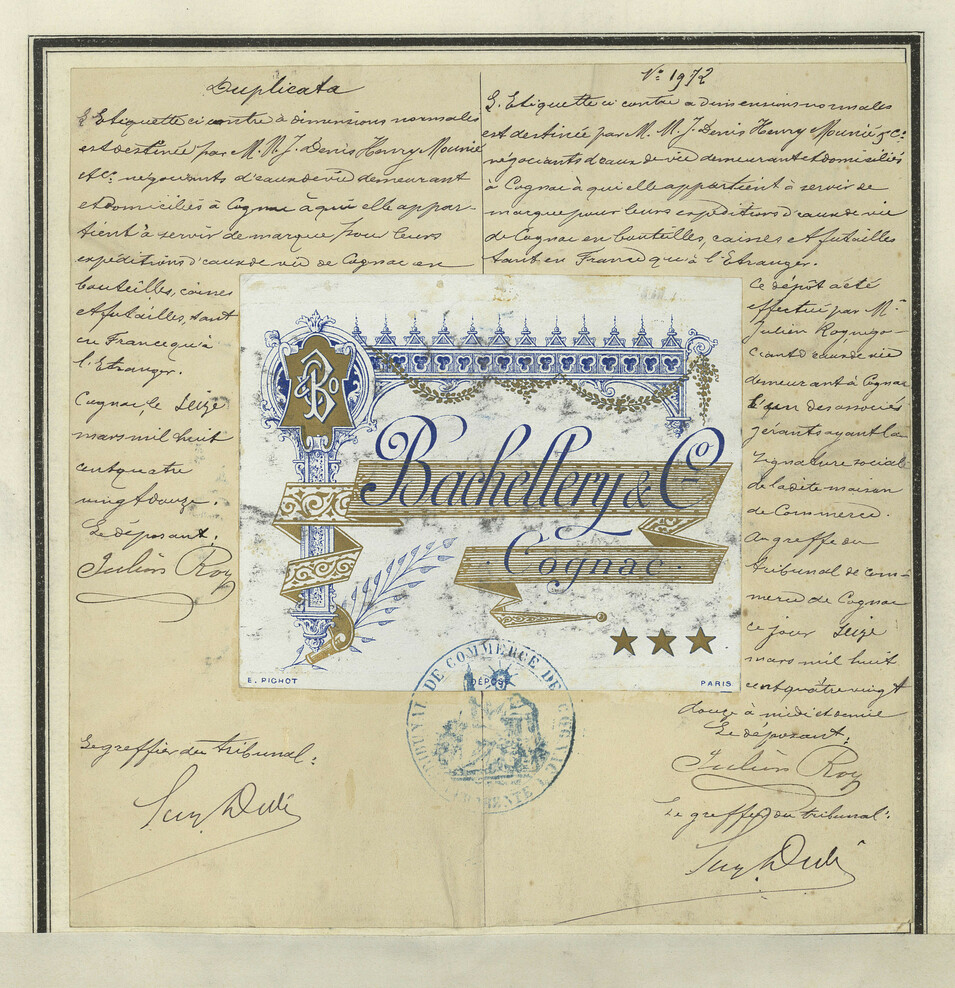 Duplicata
L'Etiquette ci contre à dimensions normales
est destinée par M. M. J. Denis Henry Mounié
& Cie. négociants d'eaux de vie demeurant
et domiciliés à Cognac à qui elle appar-
tient à servir de marque pour leurs
expéditions d'eaux de vie de Cognac en
bouteilles, caisses
et futailles, tant
en France qu'à
l'Etranger.
Cognac, le Seize
mars mil huit
cent quatre
vingt douze.
Le déposant.
Julien Roy
Le greffier du tribunal:
No 1972
L'Etiquette ci contre à dimensions normales
est destinée par M. M. J. Denis Henry Mounié & Cie
négociants d'eaux de vie demeurant et domiciliés
à Cognac à qui elle appartient à servir de
marque pour leurs expéditions d'eaux de vie
de Cognac en bouteilles, caisses et futailles
tant en France qu'à l'Etranger.
Ce dépôt a été
effectué par Mr
Julien Roy négo-
ciant d'eaux de vie
demeurant à Cognac
l'un des associés
gérants ayant la
signature sociale
de la dite maison
de Commerce.
Au greffe du
tribunal de com-
merce de Cognac
ce jour Seize
mars mil huit
cent quatre vingt
douze à midi et demie
Le déposant:
Julien Roy
Le greffier du tribunal:
B & Co
Bachellery & Co
Cognac
E. PICHOT
DÉPOSÉ
PARIS
TRIBUNAL DE COMMERCE DE COGNAC
CHARENTE